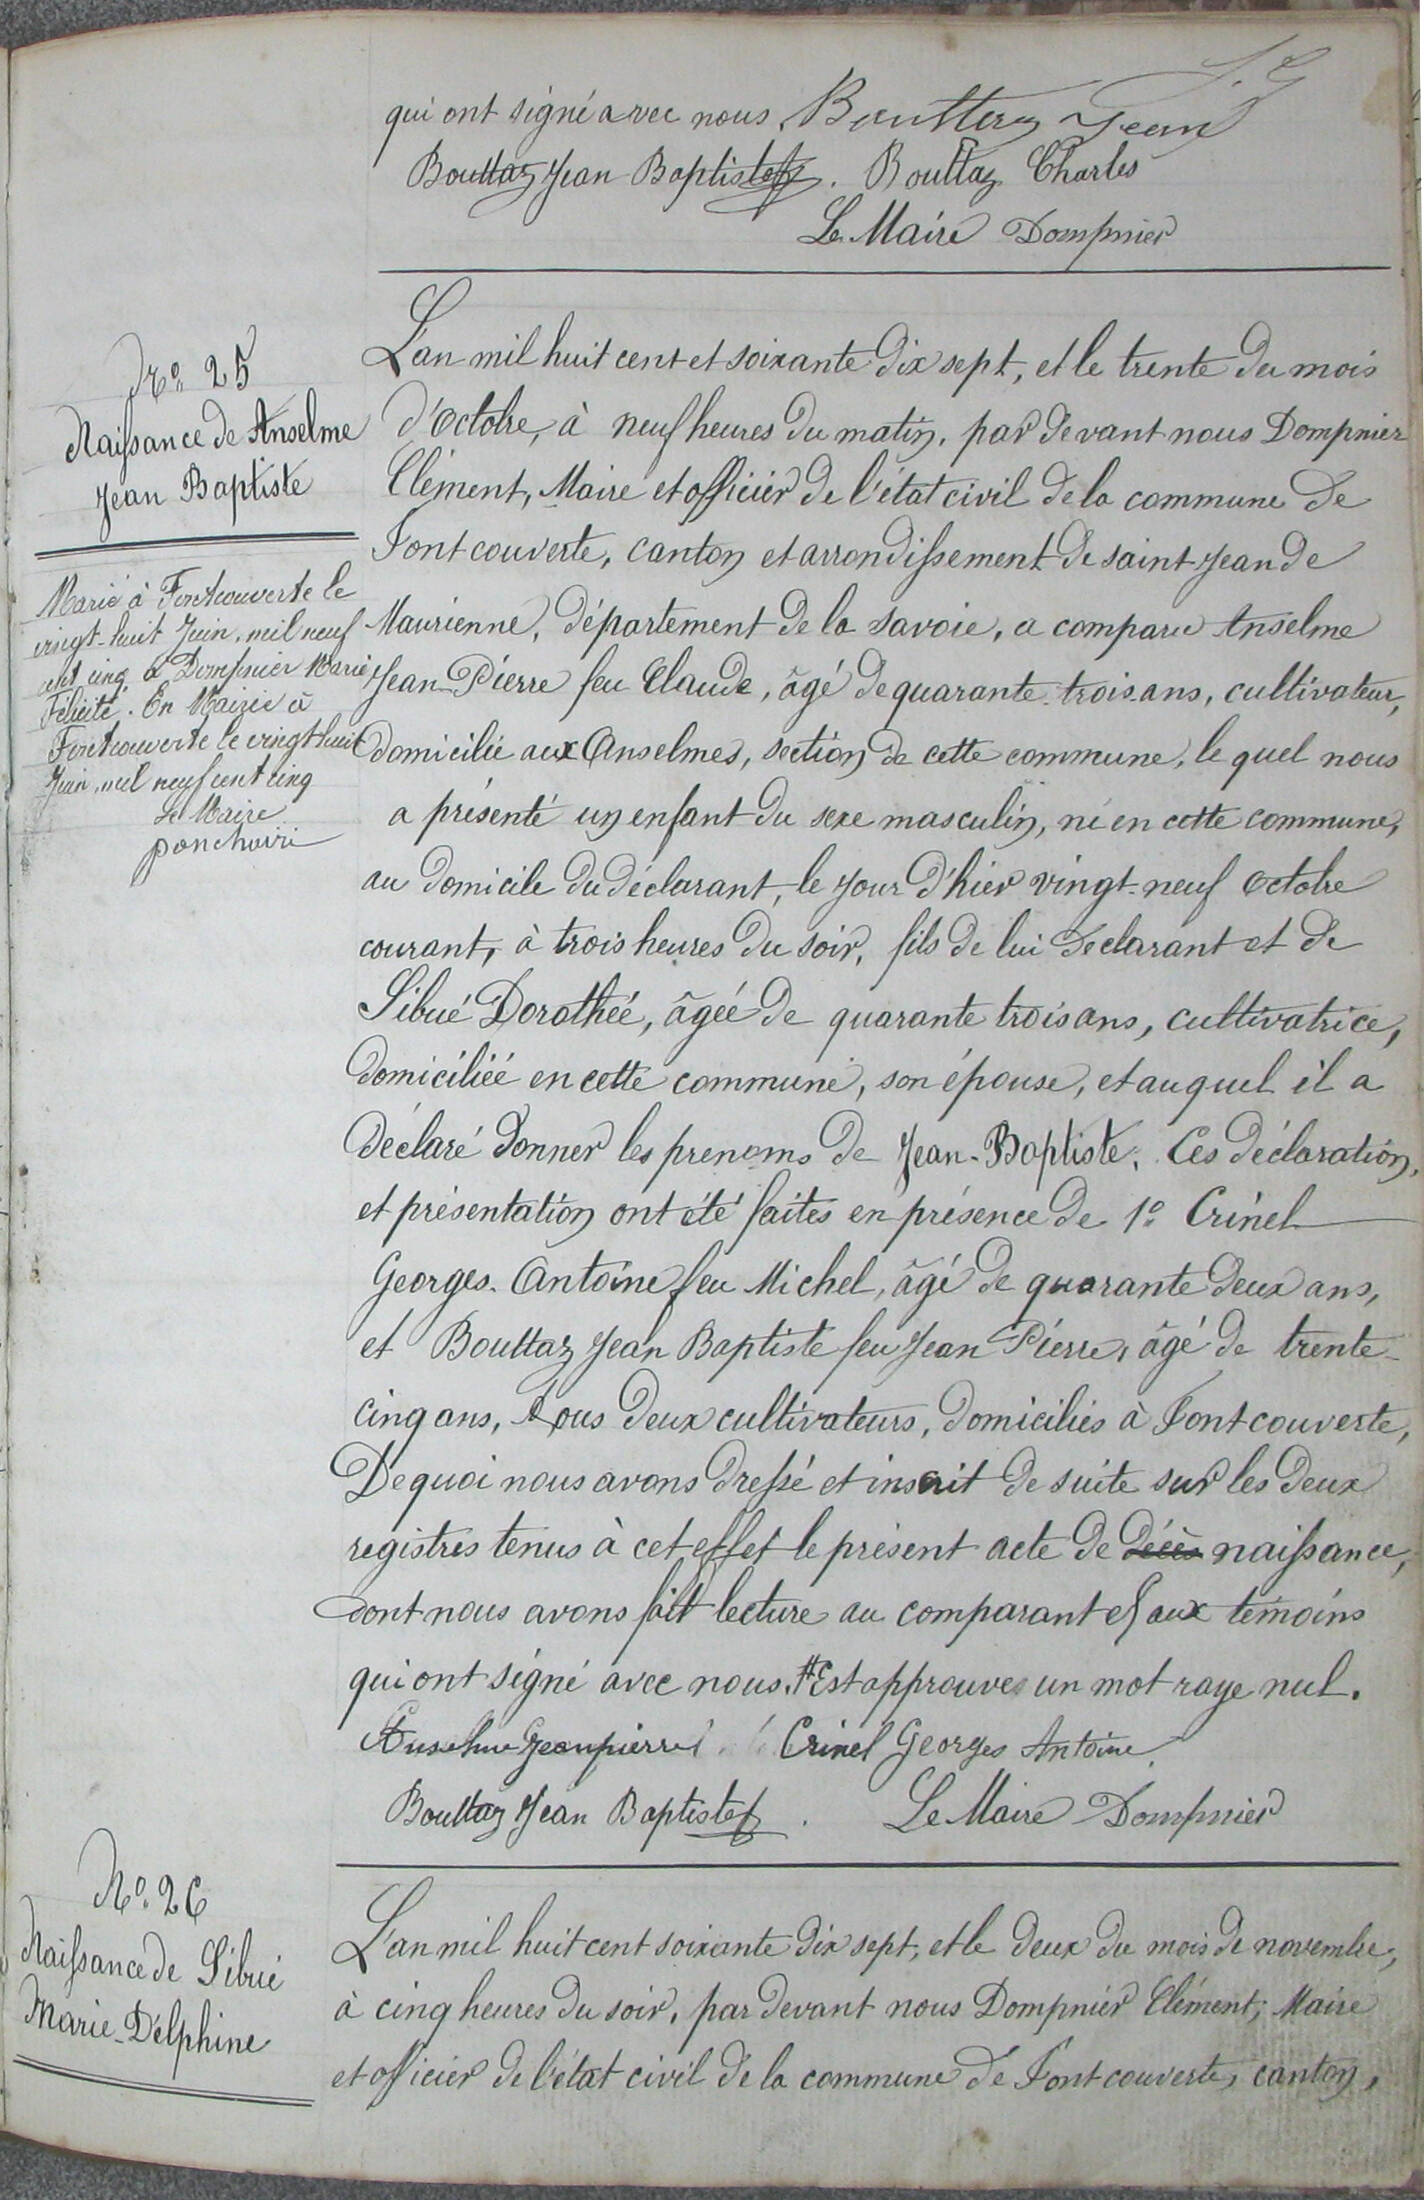 qui ont signé avec nous. Bouttaz Jean
Bouttaz Jean Baptiste. Bouttaz Charles
Le Maire Dompnier
N° 25
Naissance de Anselme
Jean Baptiste
Marié à Fontcouverte le
vingt-huit Juin, mil neuf
cent cinq à Dompnier Marie
Félicité. En Mairie à
Fontcouverte le vingt huit
Juin, mil neuf cent cinq
Le Maire
L'an mil huit cent et soixante dix sept, et le trente du mois
d'Octobre, à neuf heures du matin, par devant nous Dompnier
Clément, Maire et officier de l'état civil de la commune de
Fontcouverte, canton et arrondissement de saint-Jean de
Maurienne, département de la Savoie, a comparu Anselme
Jean-Pierre feu Claude, âgé de quarante-trois-ans, cultivateur,
domicilié aux Anselmes, section de cette commune, le quel nous
a présenté un enfant du sexe masculin, né en cette commune,
au domicile du déclarant, le jour d'hier vingt-neuf Octobre
courant, à trois heures du soir, fils de lui déclarant et de
Sibué Dorothée, âgée de quarante trois ans, cultivatrice,
domiciliée en cette commune, son épouse, et auquel il a
déclaré donner les prenoms de Jean-Baptiste. Ces déclaration
et présentation ont été faites en présence de 1° Crinel
Georges-Antoine feu Michel, âgé de quarante deux ans,
et Bouttaz Jean Baptiste feu Jean Pierre, âgé de trente-
cinq ans, tous deux cultivateurs, domiciliés à Fontcouverte,
De quoi nous avons dressé et inscrit de suite sur les deux
registres tenus à cet effet le présent acte de décès naissance,
dont nous avons fait lecture au comparant et aux témoins
qui ont signé avec nous. # Est approuvé un mot raye nul.
Anselme Jean pierre Crinel Georges Antoine
Bouttaz Jean Baptiste. Le Maire Dompnier
N° 26
Naissance de Sibué
Marie-Delphine
L'an mil huit cent soixante dix sept, et le deux du mois de novembre,
à cinq heures du soir, par devant nous Dompnier Clément, Maire
et officier de l'état civil de la commune de Fontcouverte, canton,